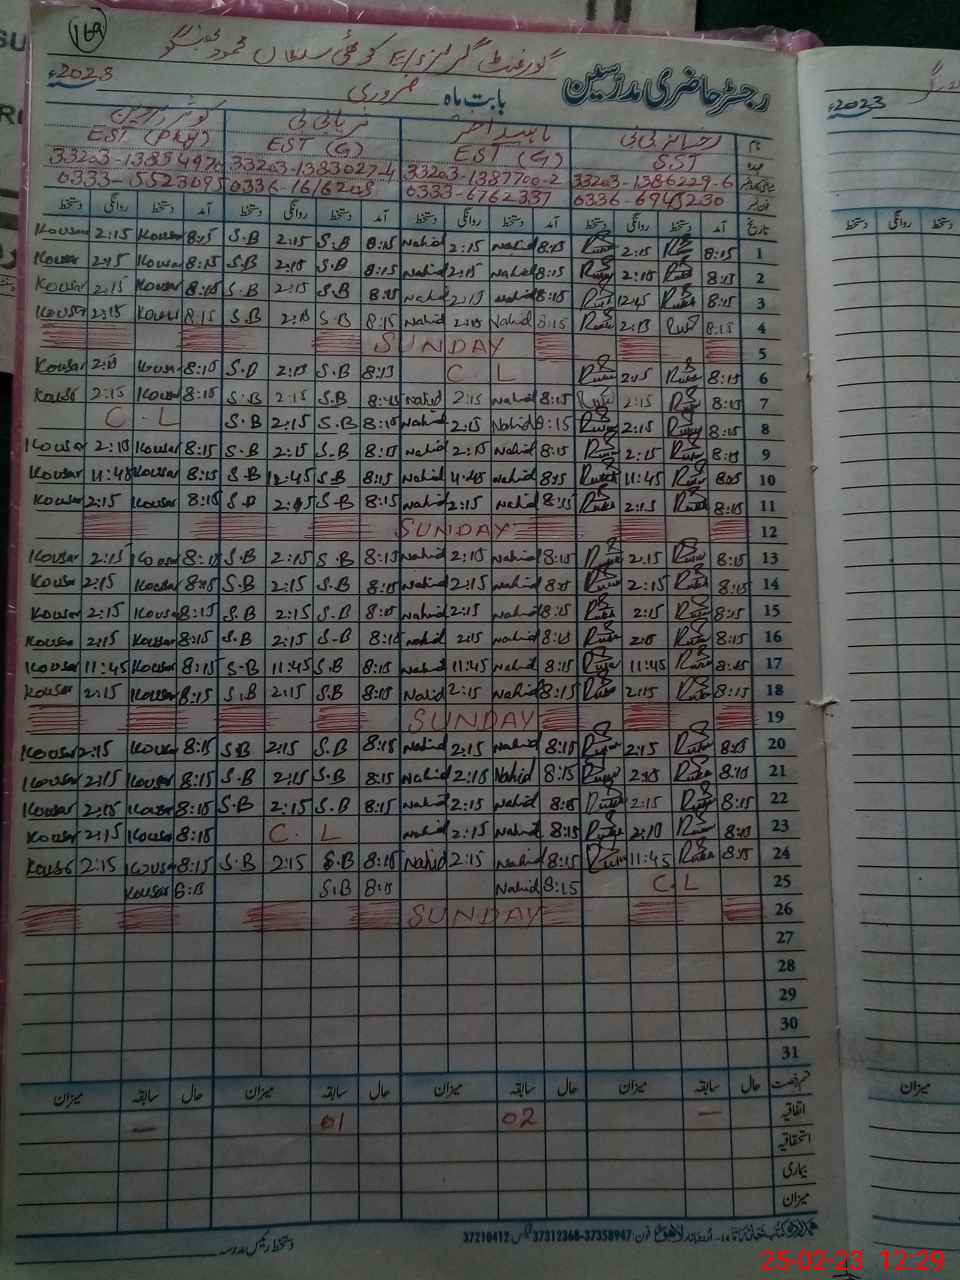 169
گورنمنٹ گرلز E/S کوٹلی سلطان محمود جھنگ
رجسٹر حاضری مدرسین
بابت ماہ فروری سنہ 2023ء
نام رخسانہ بی بی ناہید اختر ثریا بی بی کوثر پروین
SST EST (G) EST (G) EST (PhY)
33203-1385497 33203-1383027-4 33203-1387700-2 33203-1386229-6
0333-5523095 0336-1616208 0333-6762337 0336-6945230
تاریخ آمد دستخط روانگی دستخط آمد دستخط روانگی دستخط آمد دستخط روانگی دستخط آمد دستخط روانگی دستخط
Kousar 2:15 Kousar 8:15 S.B 2:15 S.B 8:15 Nahid 2:15 Nahid 8:15 2:15 8:15 1
Kousar 2:15 Kousar 8:15 S.B 2:15 S.B 8:15 Nahid 2:15 Nahid 8:15 2:15 8:15 2
Kousar 2:15 Kousar 8:15 S.B 2:15 S.B 8:15 Nahid 2:15 Nahid 8:15 12:45 8:15 3
Kousar 2:15 Kousar 8:15 S.B 2:15 S.B 8:15 Nahid 2:15 Nahid 8:15 2:15 8:15 4
SUNDAY 5
Kousar 2:15 Kousar 8:15 S.B 2:15 S.B 8:15 C L 2:15 8:15 6
Kousar 2:15 Kousar 8:15 S.B 2:15 S.B 8:15 Nahid 2:15 Nahid 8:15 2:15 8:15 7
C.L S.B 2:15 S.B 8:15 Nahid 2:15 Nahid 8:15 2:15 8:15 8
Kousar 2:15 Kousar 8:15 S.B 2:15 S.B 8:15 Nahid 2:15 Nahid 8:15 2:15 8:15 9
Kousar 11:45 Kousar 8:15 S.B 12:45 S.B 8:15 Nahid 11:45 Nahid 8:15 11:45 8:15 10
Kousar 2:15 Kousar 8:15 S.B 2:15 S.B 8:15 Nahid 2:15 Nahid 8:15 2:15 8:15 11
SUNDAY 12
Kousar 2:15 Kousar 8:15 S.B 2:15 S.B 8:15 Nahid 2:15 Nahid 8:15 2:15 8:15 13
Kousar 2:15 Kousar 8:15 S.B 2:15 S.B 8:15 Nahid 2:15 Nahid 8:15 2:15 8:15 14
Kousar 2:15 Kousar 8:15 S.B 2:15 S.B 8:15 Nahid 2:15 Nahid 8:15 2:15 8:15 15
Kousar 2:15 Kousar 8:15 S.B 2:15 S.B 8:15 Nahid 2:15 Nahid 8:15 2:15 8:15 16
Kousar 11:45 Kousar 8:15 S.B 11:45 S.B 8:15 Nahid 11:45 Nahid 8:15 11:45 8:15 17
Kousar 2:15 Kousar 8:15 S.B 2:15 S.B 8:15 Nahid 2:15 Nahid 8:15 2:15 8:15 18
SUNDAY 19
Kousar 2:15 Kousar 8:15 S.B 2:15 S.B 8:15 Nahid 2:15 Nahid 8:15 2:15 8:15 20
Kousar 2:15 Kousar 8:15 S.B 2:15 S.B 8:15 Nahid 2:15 Nahid 8:15 2:15 8:15 21
Kousar 2:15 Kousar 8:15 S.B 2:15 S.B 8:15 Nahid 2:15 Nahid 8:15 2:15 8:15 22
Kousar 2:15 Kousar 8:15 C.L Nahid 2:15 Nahid 8:15 2:10 8:15 23
Kousar 2:15 Kousar 8:15 S.B 2:15 S.B 8:15 Nahid 2:15 Nahid 8:15 11:45 8:15 24
Kousar 8:15 S.B 8:15 Nahid 8:15 C.L 25
SUNDAY 26
27
28
29
30
31
قسم رخصت حال سابقہ میزان حال سابقہ میزان حال سابقہ میزان حال سابقہ میزان
اتفاقیہ — 02 01 —
استحقاقیہ
بیماری
میزان
اردو بازار لاہور فون: 37358947-37312368 فیکس 37210412
دستخط رئیس مدرسہ
2023ء
دستخط روانگی دستخط
میزان
25-02-23 12:29